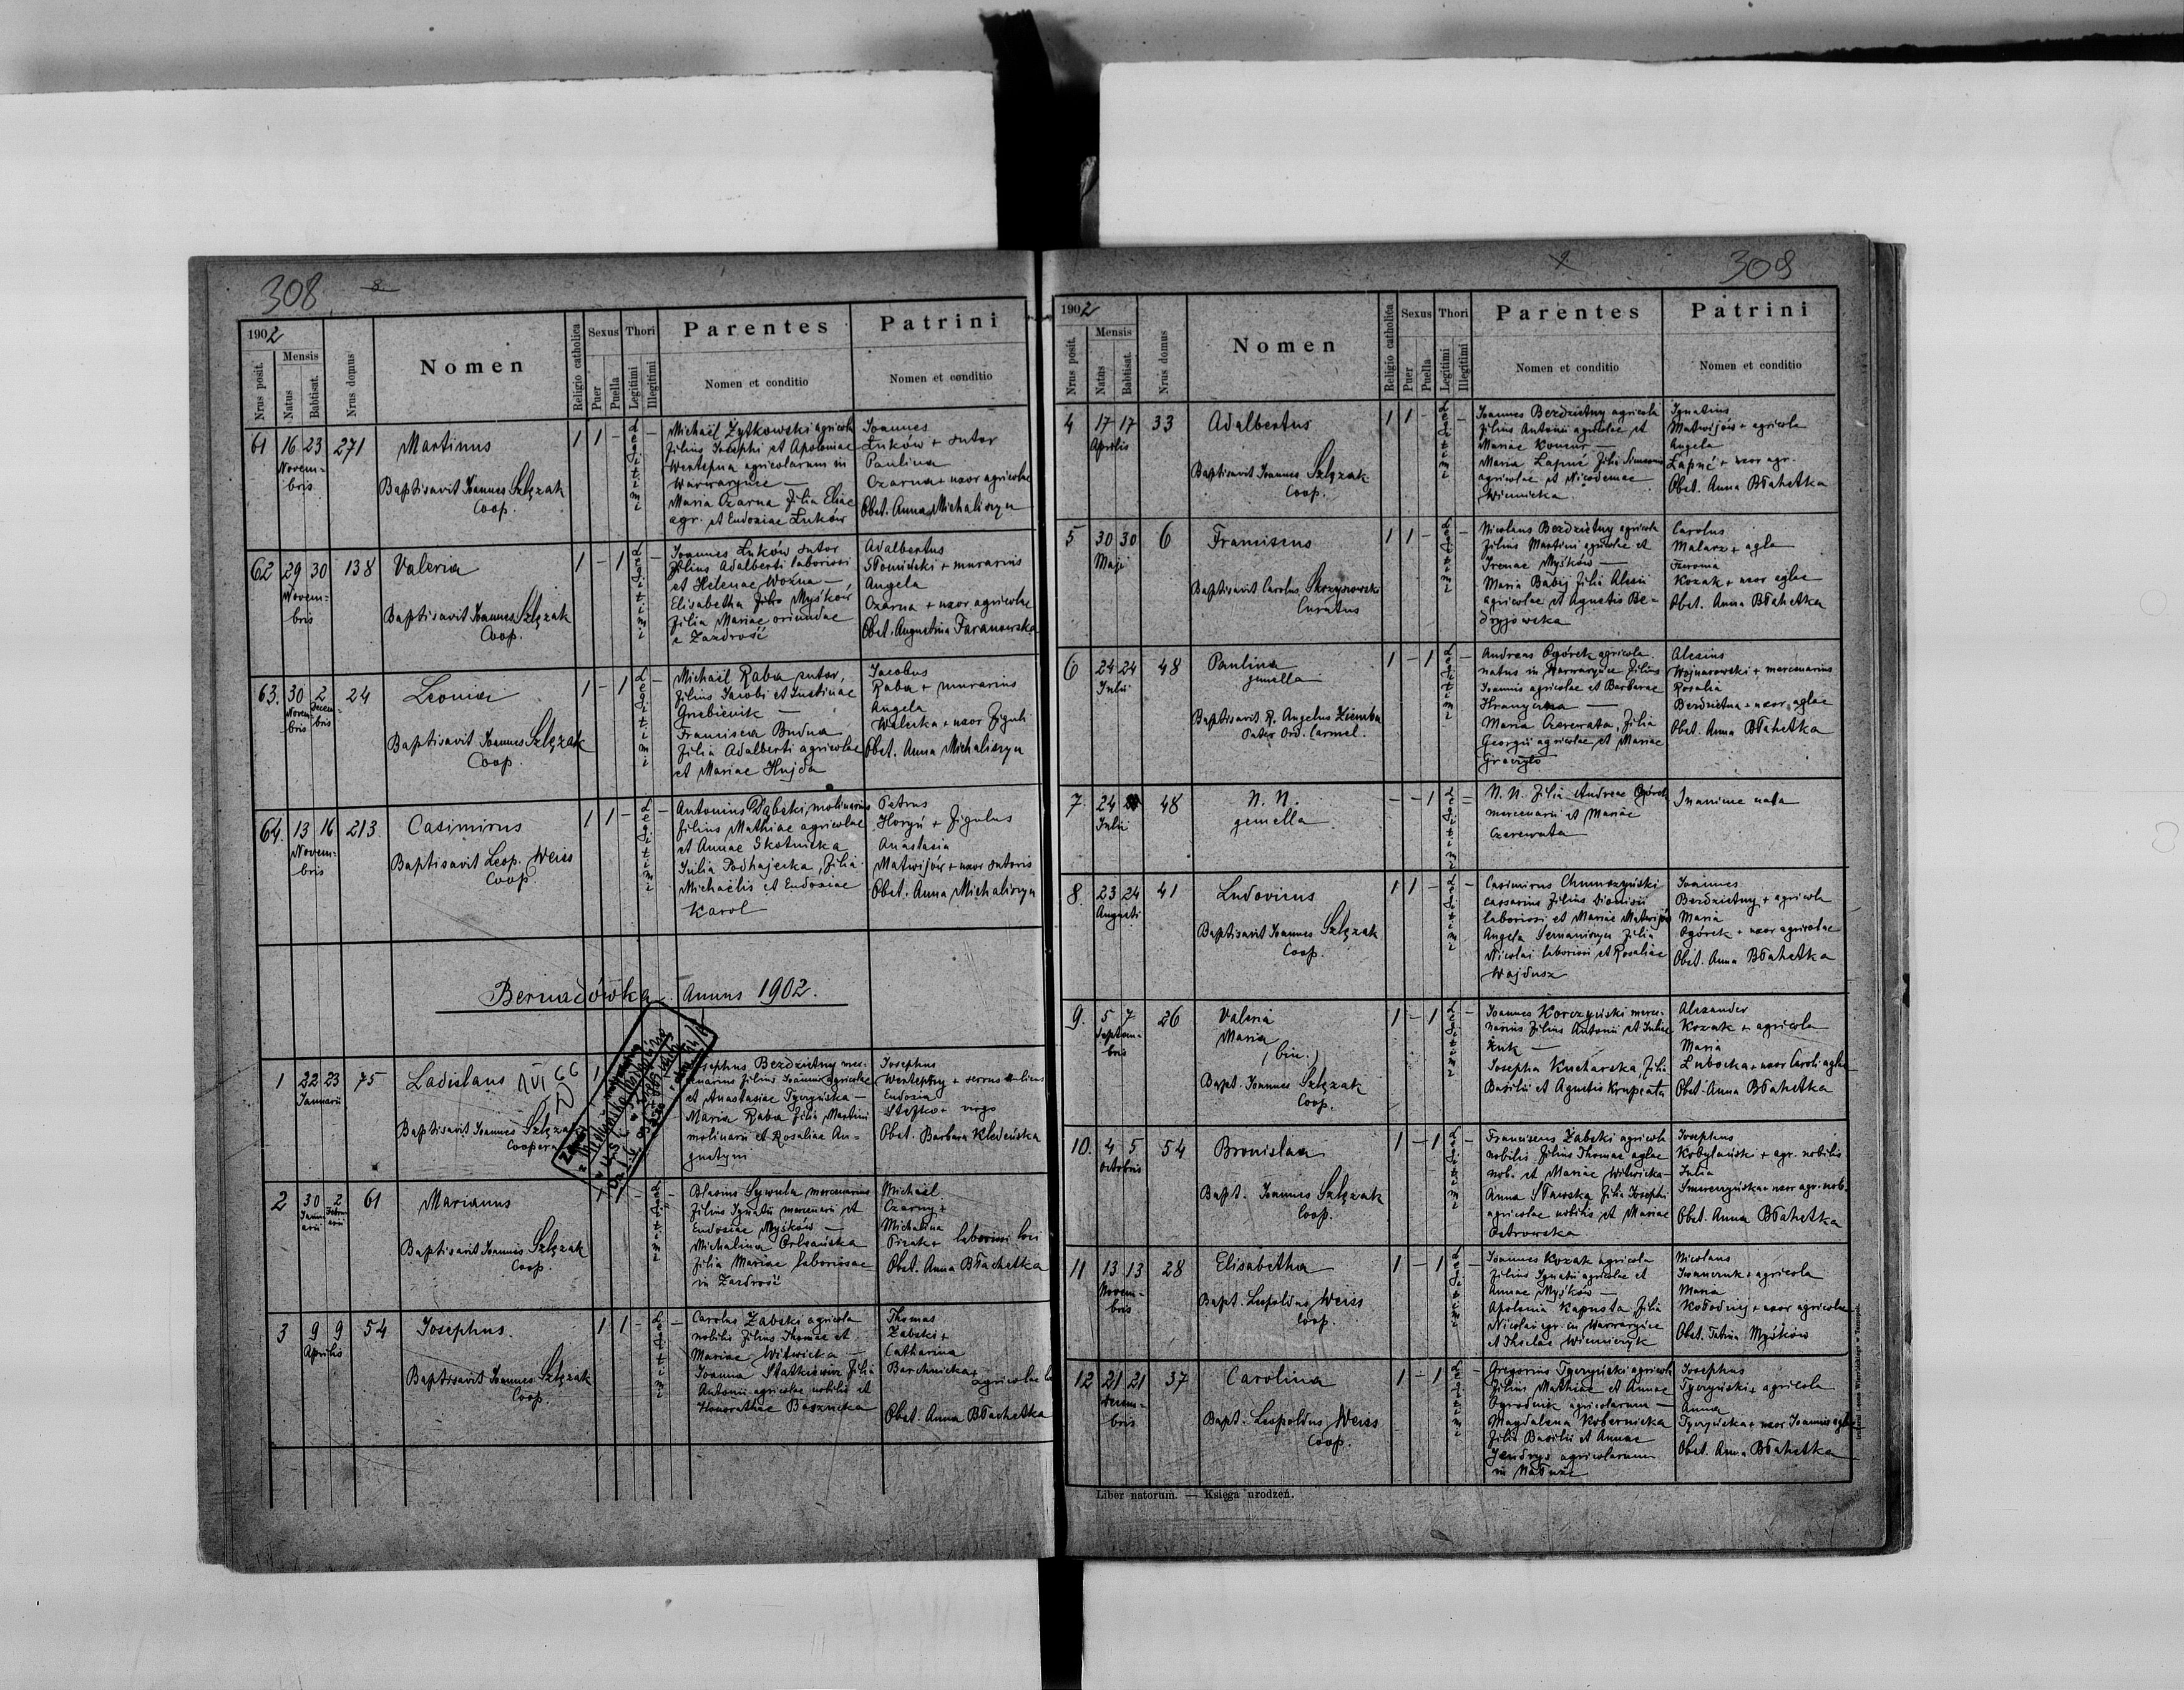 308
8
1902
Nrus posit.
Mensis
Natus
Babtisat.
Nrus domus
Nomen
Religio catholica
Sexus
Puer
Puella
Thori
Legitimi
Illegitimi
Parentes
Nomen et conditio
Patrini
Nomen et conditio
61 16 23 271
Novem-
bris
Martinus
Baptisavit Joannes Szlęzak
Coop.
1 1 -
Legitimi -
Michaël Żytkowski agricola
filius Josephi et Apoloniae
Wentepna agricolarum in
Warwaryńce —
Maria Czarna filia Eliae
agr. et Eudoxiae Łuków
Joannes
Łuków + sutor
Paulina
Czarna + uxor agricolae
Obst. Anna Michaliszyn
62 29 30 138
Novem-
bris
Valeria
Baptisavit Joannes Szlęzak
Coop.
1 - 1
Legitimi -
Joannes Łuków sutor
filius Adalberti laboriosi
et Helenae Woźna —
Elisabetha Myśków
filia Mariae oriundae
e Zazdrość
Adalbertus
Słowiński + murarius
Angela
Czarna + uxor agricolae
Obst. Augustina Taranowska
63. 30 2 24
Novem-
bris
Decem-
bris
Leonia
Baptisavit Joannes Szlęzak
Coop.
1 - 1
Legitimi -
Michaël Raba sutor,
filius Jacobi et Justinae
Grebieník —
Francisca Budna
filia Adalberti agricolae
et Mariae Hujda
Jacobus
Raba + murarius
Angela
Walecka + uxor figuli
Obst. Anna Michaliszyn
64. 13 16 213
Novem-
bris
Casimirus
Baptisavit Leop. Weiss
Coop.
1 1 -
Legitimi -
Antonius Dąbski, molinarius
filius Mathiae agricolae
et Annae Skotnicka
Julia Podhajecka, filia
Michaëlis et Eudoxiae
Karol
Petrus
Horyń + figulus
Anastasia
Matwijów + uxor sutoris
Obst. Anna Michaliszyn
Bernadówka. Annus 1902.
1 22 23 75
Januarii
Ladislaus
Baptisavit Joannes Szlęzak
Josephus Bezdzietny mer-
cenarius filius Joannis agricolae
et Anastasiae Tyczyńska —
Maria Raba filia Martini
molinarii et Rosaliae An-
gustyni
Josephus
Wenteptny + servus
Eudoxia
Stefko + virgo
Obst. Barbara Kledeńska
2 30 2 61
Janu-
arii
Febru-
arii
Marianus
Baptisavit Joannes Szlęzak
Coop.
Legitimi -
Blasius Sywula mercenarius
filius Ignatii mercenarii et
Eudoxiae Myśków —
Michalina Orleańska
filia Mariae laboriosae
in Zazdrość
Michaël
Czarny +
Michalina
Pizak + laboriosi loci
Obst. Anna Błachetka
3 9 9 54
Aprilis
Josephus.
Baptisavit Joannes Szlęzak
Coop.
1 1 -
Legitimi -
Carolus Żabski agricola
nobilis filius Thomae et
Mariae Witwicka —
Joanna Statkiewicz filia
Antonii agricolae nobilis et
Honorathae Basznicka
Thomas
Żabski +
Catharina
Barchnicka +
agricolae
Obst. Anna Błachetka
309
9
1902
Nrus posit.
Mensis
Natus
Babtisat.
Nrus domus
Nomen
Religio catholica
Sexus
Puer
Puella
Thori
Legitimi
Illegitimi
Parentes
Nomen et conditio
Patrini
Nomen et conditio
4 17 17 33
Aprilis
Adalbertus
Baptisavit Joannes Szlęzak
Coop.
1 1 -
Legitimi -
Joannes Bezdzietny agricola
filius Antonii agricolae et
Mariae Koncur —
Maria Łapuć filia Simeonis
agricolae et Nicodemae
Winnicka
Ignatius
Matwijów + agricola
Angela
Łapuć + uxor agr.
Obst. Anna Błahetka
5 30 30 6
Maji
Franciscus
Baptisavit Carolus Skrzyszowski
Curatus
1 1 -
Legitimi -
Nicolaus Bezdzietny agricola
filius Martini agricolae et
Irenae Myśków —
Maria Babij filia Alexii
agricolae et Agnetis Be-
dryjowska
Carolus
Malarz + agla
Kozak + uxor aglae
Obst. Anna Błahetka
6 24 24 48
Julii
Paulina
gemella
Baptisavit R. Angelus Ziemba
Pater Ord. Carmel.
1 - 1
Legitimi -
Andreas Ogórek agricola
natus in Warwaryńce filius
Joannis agricolae et Barbarae
Hranyczna —
Maria Czerewata, filia
Georgii agricolae et Mariae
Graczyło
Alexius
Wojnarowski + mercenarius
Rosalia
Bezdzietna + uxor aglae
Obst. Anna Błahetka
7 24 48
Julii
N. N.
gemella
- - 1
Legitimi -
N. N. filia Andreae Ogórek
mercenarii et Mariae
Czerewata
Inanime nata
8. 23 24 41
Augusti
Ludovicus
Baptisavit Joannes Szlęzak
Coop.
1 1 -
Legitimi -
Casimirus Chruszczyński
cassarius filius Dionisii
laboriosi et Mariae Matwijów
Angela Semaniszyn filia
Nicolai laboriosi et Rosaliae
Wajdusz
Joannes
Bezdzietny + agricola
Maria
Ogórek + uxor agricolae
Obst. Anna Błahetka
9. 5 7 26
Septem-
bris
Valeria
Maria
(bin.)
Bapt. Joannes Szlęzak
Coop.
1 - 1
Legitimi -
Joannes Korczyński merce-
narius filius Antonii et Juliae
Żuk —
Josepha Kucharska, filia
Basilii et Agnetis Krupcata
Alexander
Kozak + agricola
Maria
Łubocka + uxor Caroli aglae
Obst. Anna Błahetka
10. 4 5 54
Octobris
Bronislaa
Bapt. Joannes Szlęzak
Coop.
1 - 1
Legitimi -
Franciscus Żabski agricola
nobilis filius Thomae aglae
nob. et Mariae Witwicka —
Anna Sławska filia Josephi
agricolae nobilis et Mariae
Ostrowska
Josephus
Kobylański + agr. nobilis
Julia
Smereczyńska + uxor agr. nob.
Obst. Anna Błahetka
11 13 13 28
Novem-
bris
Elisabetha
Bapt. Leopoldus Weiss
Coop.
1 - 1
Legitimi -
Joannes Kozak agricola
filius Ignatii agricolae et
Annae Myśków —
Apolonia Kapusta filia
Nicolai agr. in Warwaryńce
et Theclae Winniczyk
Nicolaus
Iwanczuk + agricola
Maria
Kołodnij + uxor agricolae
Obst. Tatina Myśków
12 21 21 37
Decem-
bris
Carolina
Bapt. Leopoldus Weiss
Coop.
1 - 1
Legitimi -
Gregorius Tyczyński agricola
filius Mathiae et Annae
Ogrodnik agricolarum —
Magdalena Kobernicka
filia Basilii et Annae
Jendrys agricolarum
in Nałuże
Josephus
Tyczyński + agricola
Anna
Tyczyńska + uxor Joannis aglae
Obst. Anna Błahetka
Liber natorum. — Księga urodzeń.